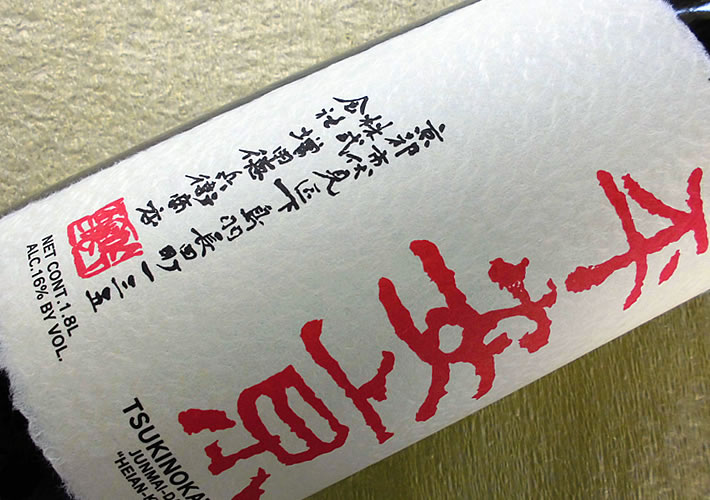 平安京
京都市伏見区下鳥羽長田町一三五
株式会社 増田德兵衞商店
NET CONT.1.8L
ALC.16% BY VOL.
TSUKINOKA
JUNMAI-D
"HEIAN-K